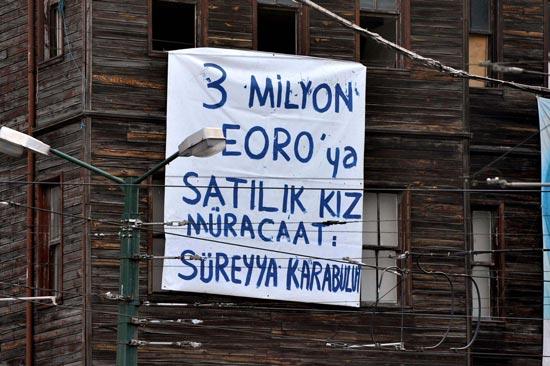 3 MİLYON
EORO'ya
SATILIK KIZ
MÜRACAAT:
SÜREYYA KARABULUT